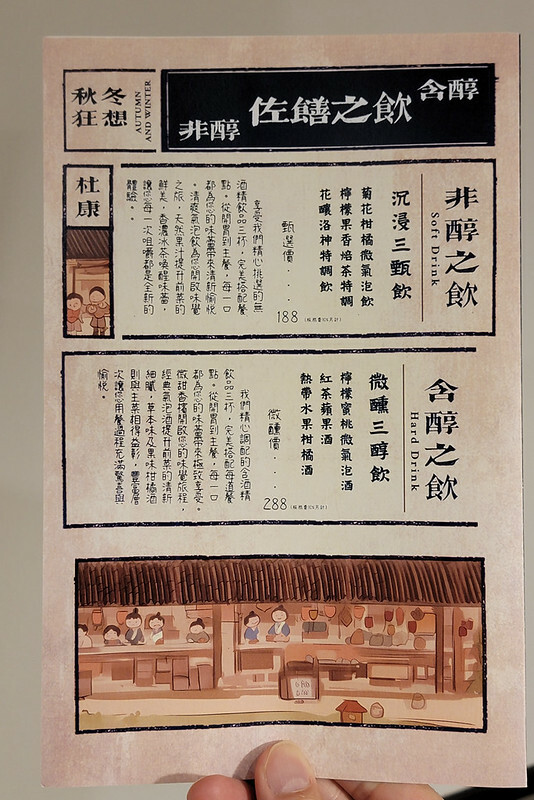 秋冬
狂想
AUTUMN
AND WINTER
非醇 佐饍之飲 含醇
杜康
非醇之飲
Soft Drink
沉浸三甄飲
菊花柑橘微氣泡飲
檸檬果香焙茶特調
花釀洛神特調飲
甄選價...188
享受我們精心挑選的無
酒精飲品三杯，完美搭配餐
點。從開胃到主餐，每一口
都為您的味蕾帶來清新愉悅
。清爽氣泡飲為您開啟味覺
之旅，天然果汁提升前菜的
鮮美，香濃冰茶喚醒味蕾，
讓您每一次咀嚼都是全新的
體驗。
含醇之飲
Hard Drink
微醺三醇飲
檸檬蜜桃微氣泡酒
紅茶蘋果酒
熱帶水果柑橘酒
微醺價...288
我們精心調配的含酒精
飲品三杯，完美搭配每道餐
點。從開胃到主餐，每一口
都為您的味蕾帶來極致享受。
微甜香檳開啟您的味覺旅程，
經典氣泡酒提升前菜的清新
細膩，草本味及果味柑橘酒
則與主菜相得益彰，豐富層
次讓您用餐過程充滿驚喜與
愉悅。